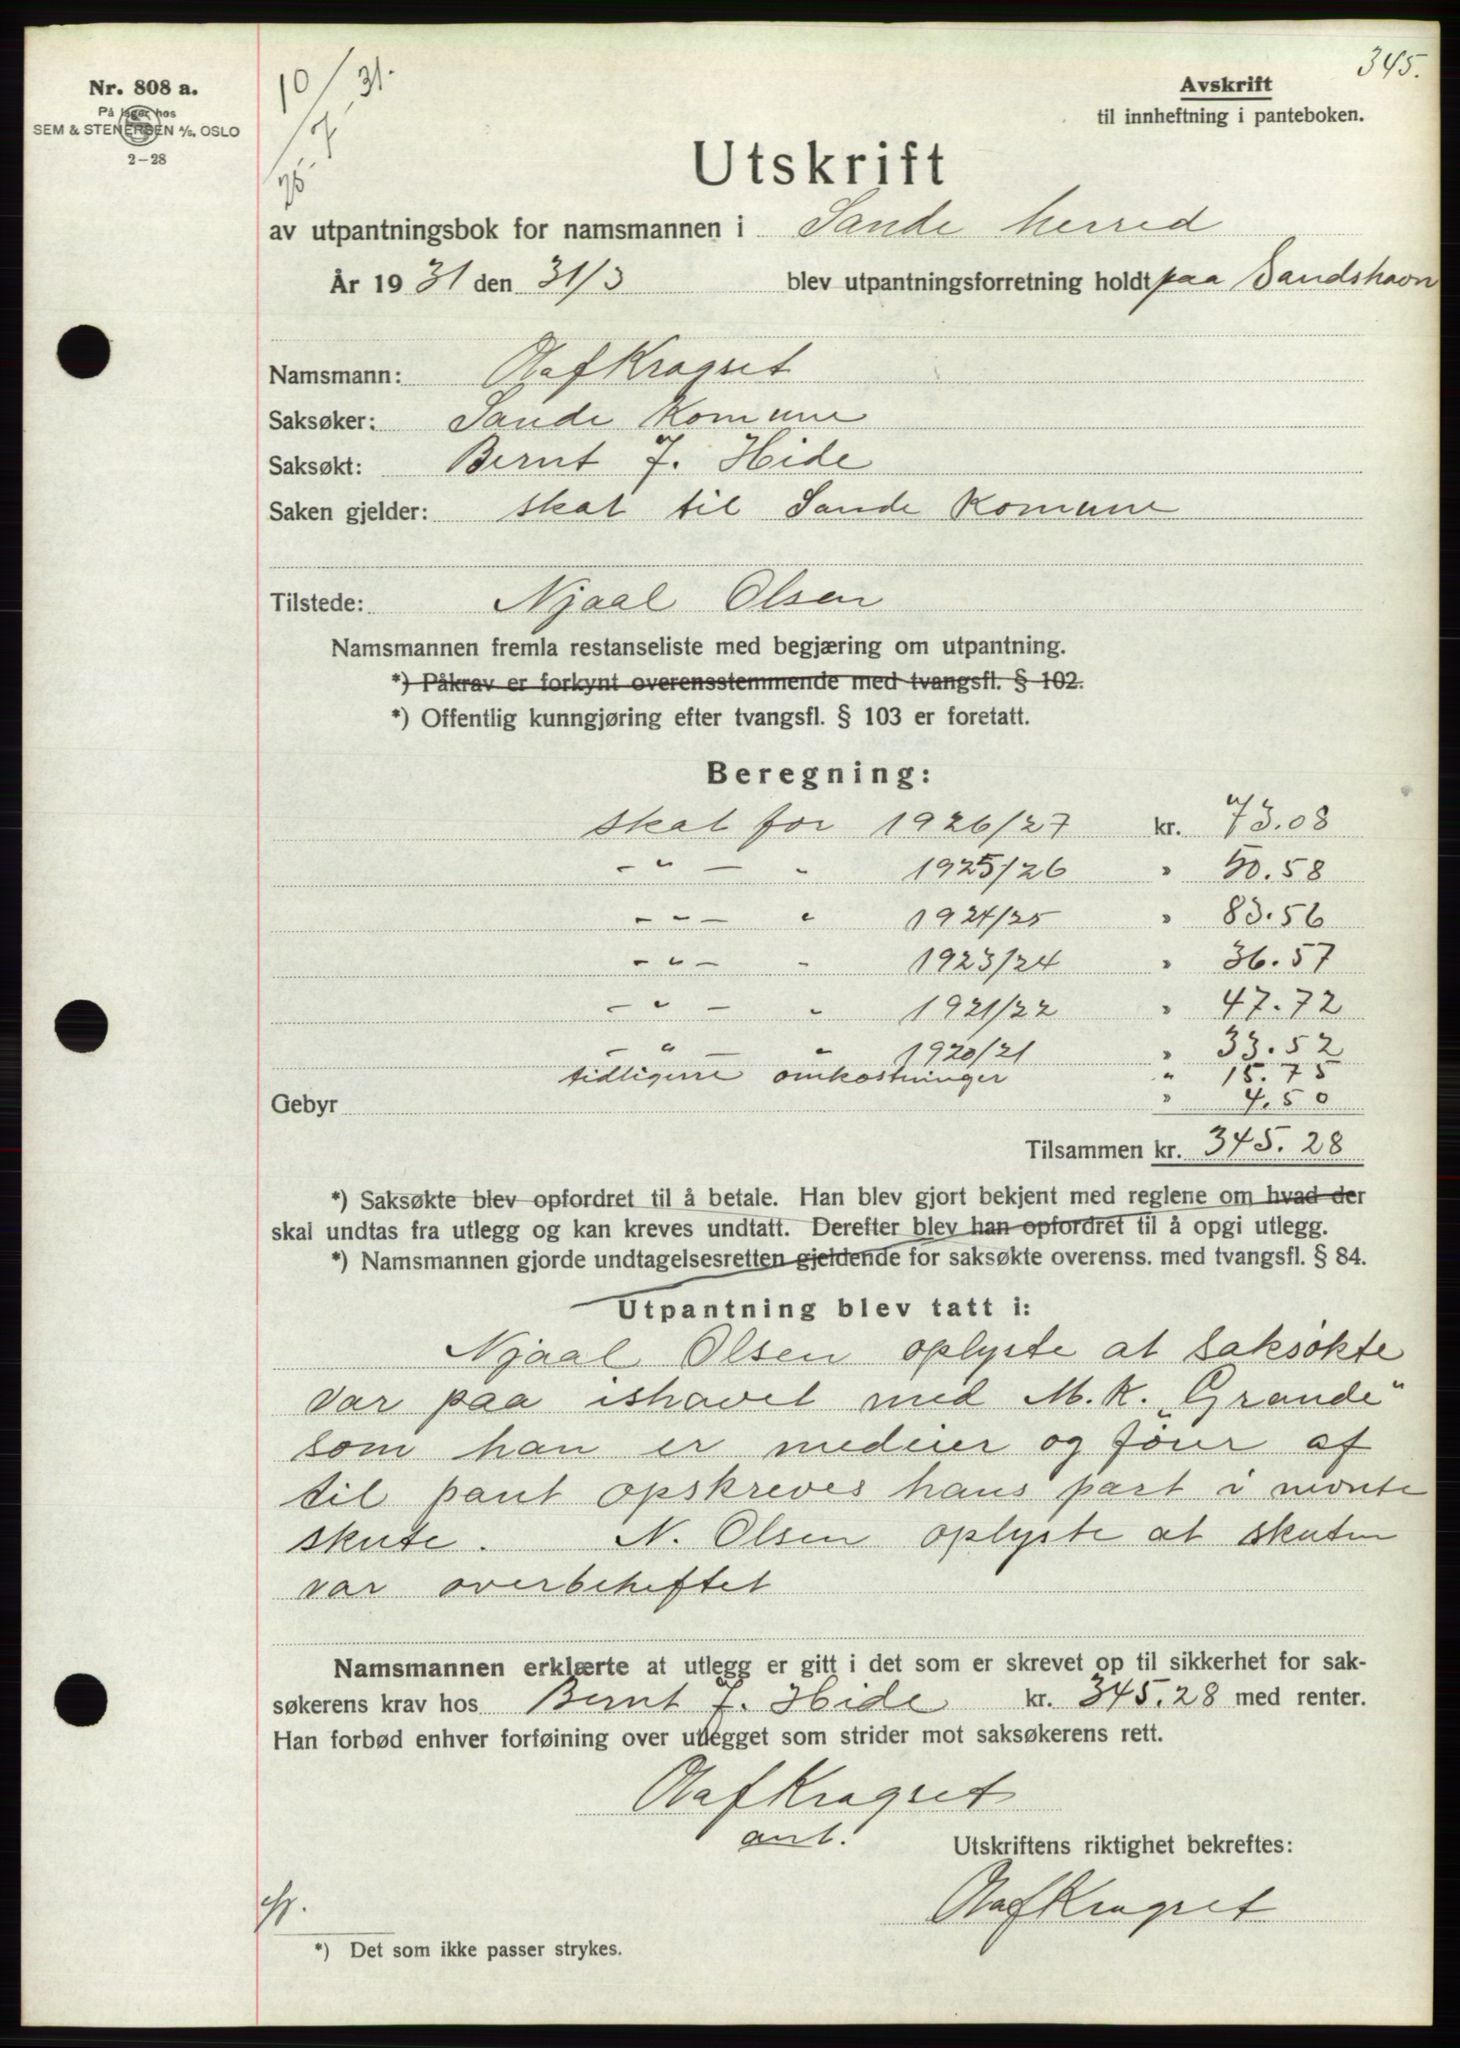 345.
10/7 31.
75
Nr. 808 a.
På lager hos
SEM & STENERSEN A/S. OSLO
2-28
Avskrift
til innheftning i panteboken.
Utskrift
av utpantningsbok for namsmannen i Sande herred
År 1931 den 31/3 blev utpantningsforretning holdt paa Sandshavn
Namsmann: Olaf Kragset
Saksøker: Sande Komune
Saksøkt: Bernt J. Hide
Saken gjelder: skat til Sande Komune
Tilstede: Njaal Olsen
Namsmannen fremla restanseliste med begjæring om utpantning.
*) Påkrav er forkynt overensstemmende med tvangsfl. § 102.
*) Offentlig kunngjøring efter tvangsfl. § 103 er foretatt.
Beregning:
skat for 1926/27 kr. 73.08
- " - " 1925/26 " 50.58
- " - " 1924/25 " 83.56
- " - " 1923/24 " 36.57
- " - " 1921/22 " 47.72
- " - " 1920/21 " 33.52
tidligere omkostninger " 15.75
Gebyr " 4.50
Tilsammen kr. 345.28
*) Saksøkte blev opfordret til å betale. Han blev gjort bekjent med reglene om hvad der
skal undtas fra utlegg og kan kreves undtatt. Derefter blev han opfordret til å opgi utlegg.
*) Namsmannen gjorde undtagelsesretten gjeldende for saksøkte overenss. med tvangsfl. § 84.
Utpantning blev tatt i:
Njaal Olsen oplyste at saksøkte
var paa ishavet med M.K. „Grande"
som han er medeier og fører af
til pant opskreves hans part i nevnte
skute. N. Olsen oplyste at skuten
var overbeheftet
Namsmannen erklærte at utlegg er gitt i det som er skrevet op til sikkerhet for sak-
søkerens krav hos Bernt J. Hide kr. 345.28 med renter.
Han forbød enhver forføining over utlegget som strider mot saksøkerens rett.
Olaf Kragset
ant.
Utskriftens riktighet bekreftes:
Olaf Kragset
*) Det som ikke passer strykes.